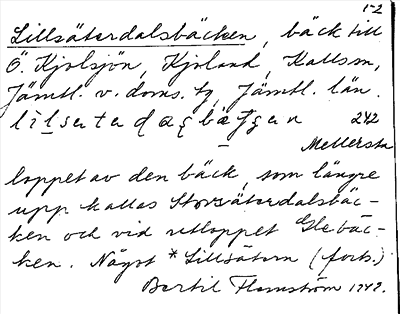 1-2
Lillsäterdalsbäcken, bäck till
Ö. Kjolsjön, Kjoland, Kallsm,
Jämtl. v. doms. tg, Jämtl. län.
242
Mellersta
loppet av den bäck, som längre
upp kallas Storsäterdalsbäc-
ken och vid utloppet Glebäc-
ken. Något * Lillsätern (forts.)
Bertil Flemström 1949.